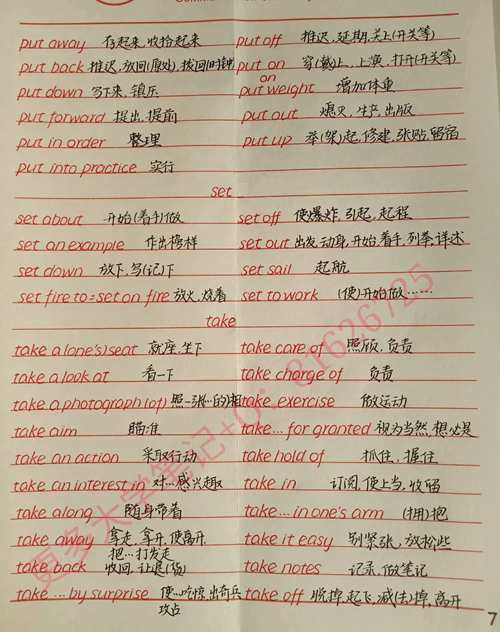 put away 存起来,收拾起来 put off 推迟,延期,关上(开关等)
put back 推迟,放回(原处),拨回(时钟) put on 穿(戴)上,上演,打开(开关等)
put down 写下来,镇压 put on weight 增加体重
put forward 提出,提前 put out 熄灭,生产,出版
put in order 整理 put up 举(架)起,修建,张贴,留宿
put into practice 实行
set
set about 开始(着手)做 set off 使爆炸,引起,起程
set an example 作出榜样 set out 出发,动身,开始,着手,列举,详述
set down 放下,写(记)下 set sail 起航
set fire to=set on fire 放火,烧着 set to work (使)开始做……
take
take a(one's)seat 就座,坐下 take care of 照顾,负责
take a look at 看一下 take charge of 负责
take a photograph(of) 照一张…的)相 take exercise 做运动
take aim 瞄准 take…for granted 视为当然,想必是
take an action 采取行动 take hold of 抓住,握住
take an interest in 对…感兴趣 take in 订阅,使上当,收留
take along 随身带着 take…in one's arm (拥)抱
take away 拿走,拿开,使离开 take it easy 别紧张,放松些
把…打发走
take back 收回,让退(货) take notes 记录,做笔记
take…by surprise 使…吃惊,出奇兵 take off 脱掉,起飞,减(去)掉,离开
攻占
7
更多大学笔记+Q:81626725